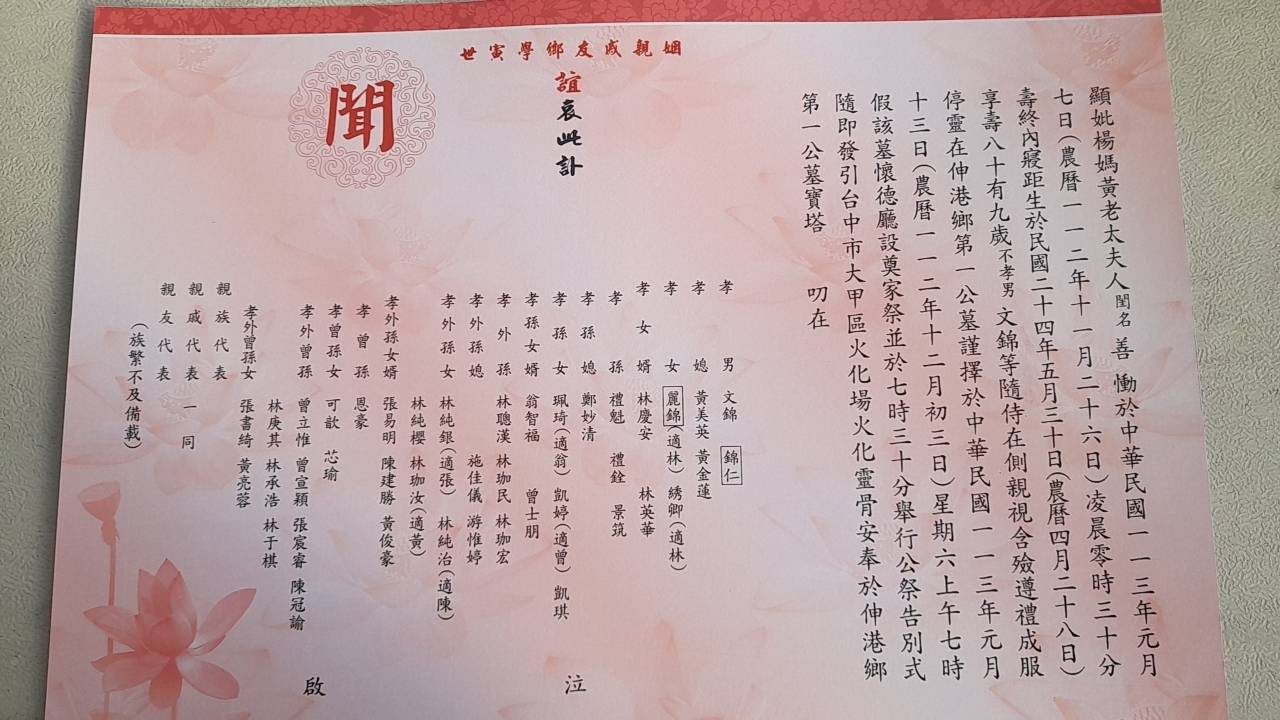 顯妣楊媽黃老太夫人閨名善 慟於中華民國一一三年元月
七日(農曆一一二年十一月二十六日)凌晨零時三十分
壽終內寢距生於民國二十四年五月三十日(農曆四月二十八日)
享壽八十有九歲不孝男文錦等隨侍在側親視含殮遵禮成服
停靈在伸港鄉第一公墓謹擇於中華民國一一三年元月
十三日(農曆一一二年十二月初三日)星期六上午七時
假該墓懷德廳設奠家祭並於七時三十分舉行公祭告別式
隨即發引台中市大甲區火化場火化靈骨安奉於伸港鄉
第一公墓寶塔 叨在
姻親戚友鄉學寅世
誼哀此訃
聞
孝男 文錦 錦仁
孝媳 黃美英 黃金蓮
孝女 麗錦(適林) 綉卿(適林)
孝女婿 林慶安 林英華
孝孫 禮魁 禮銓 景筑
孝孫媳 鄭妙清
孝孫女 珮琦(適翁) 凱婷(適曾) 凱琪
孝孫女婿 翁智福 曾士朋
孝外孫 林聰漢 林珈民 林珈宏
孝外孫媳 施佳儀 游惟婷
孝外孫女 林純銀(適張) 林純治(適陳)
林純櫻 林珈汝(適黃)
孝外孫女婿 張易明 陳建勝 黃俊豪
孝曾孫 恩豪
孝曾孫女 可歆 芯瑜
孝外曾孫 曾立惟 曾宣穎 張宸睿 陳冠諭
林庚其 林承浩 林于棋
孝外曾孫女 張書綺 黃亮蓉
親族代表
親戚代表 一同
親友代表
(族繁不及備載)
泣
啟